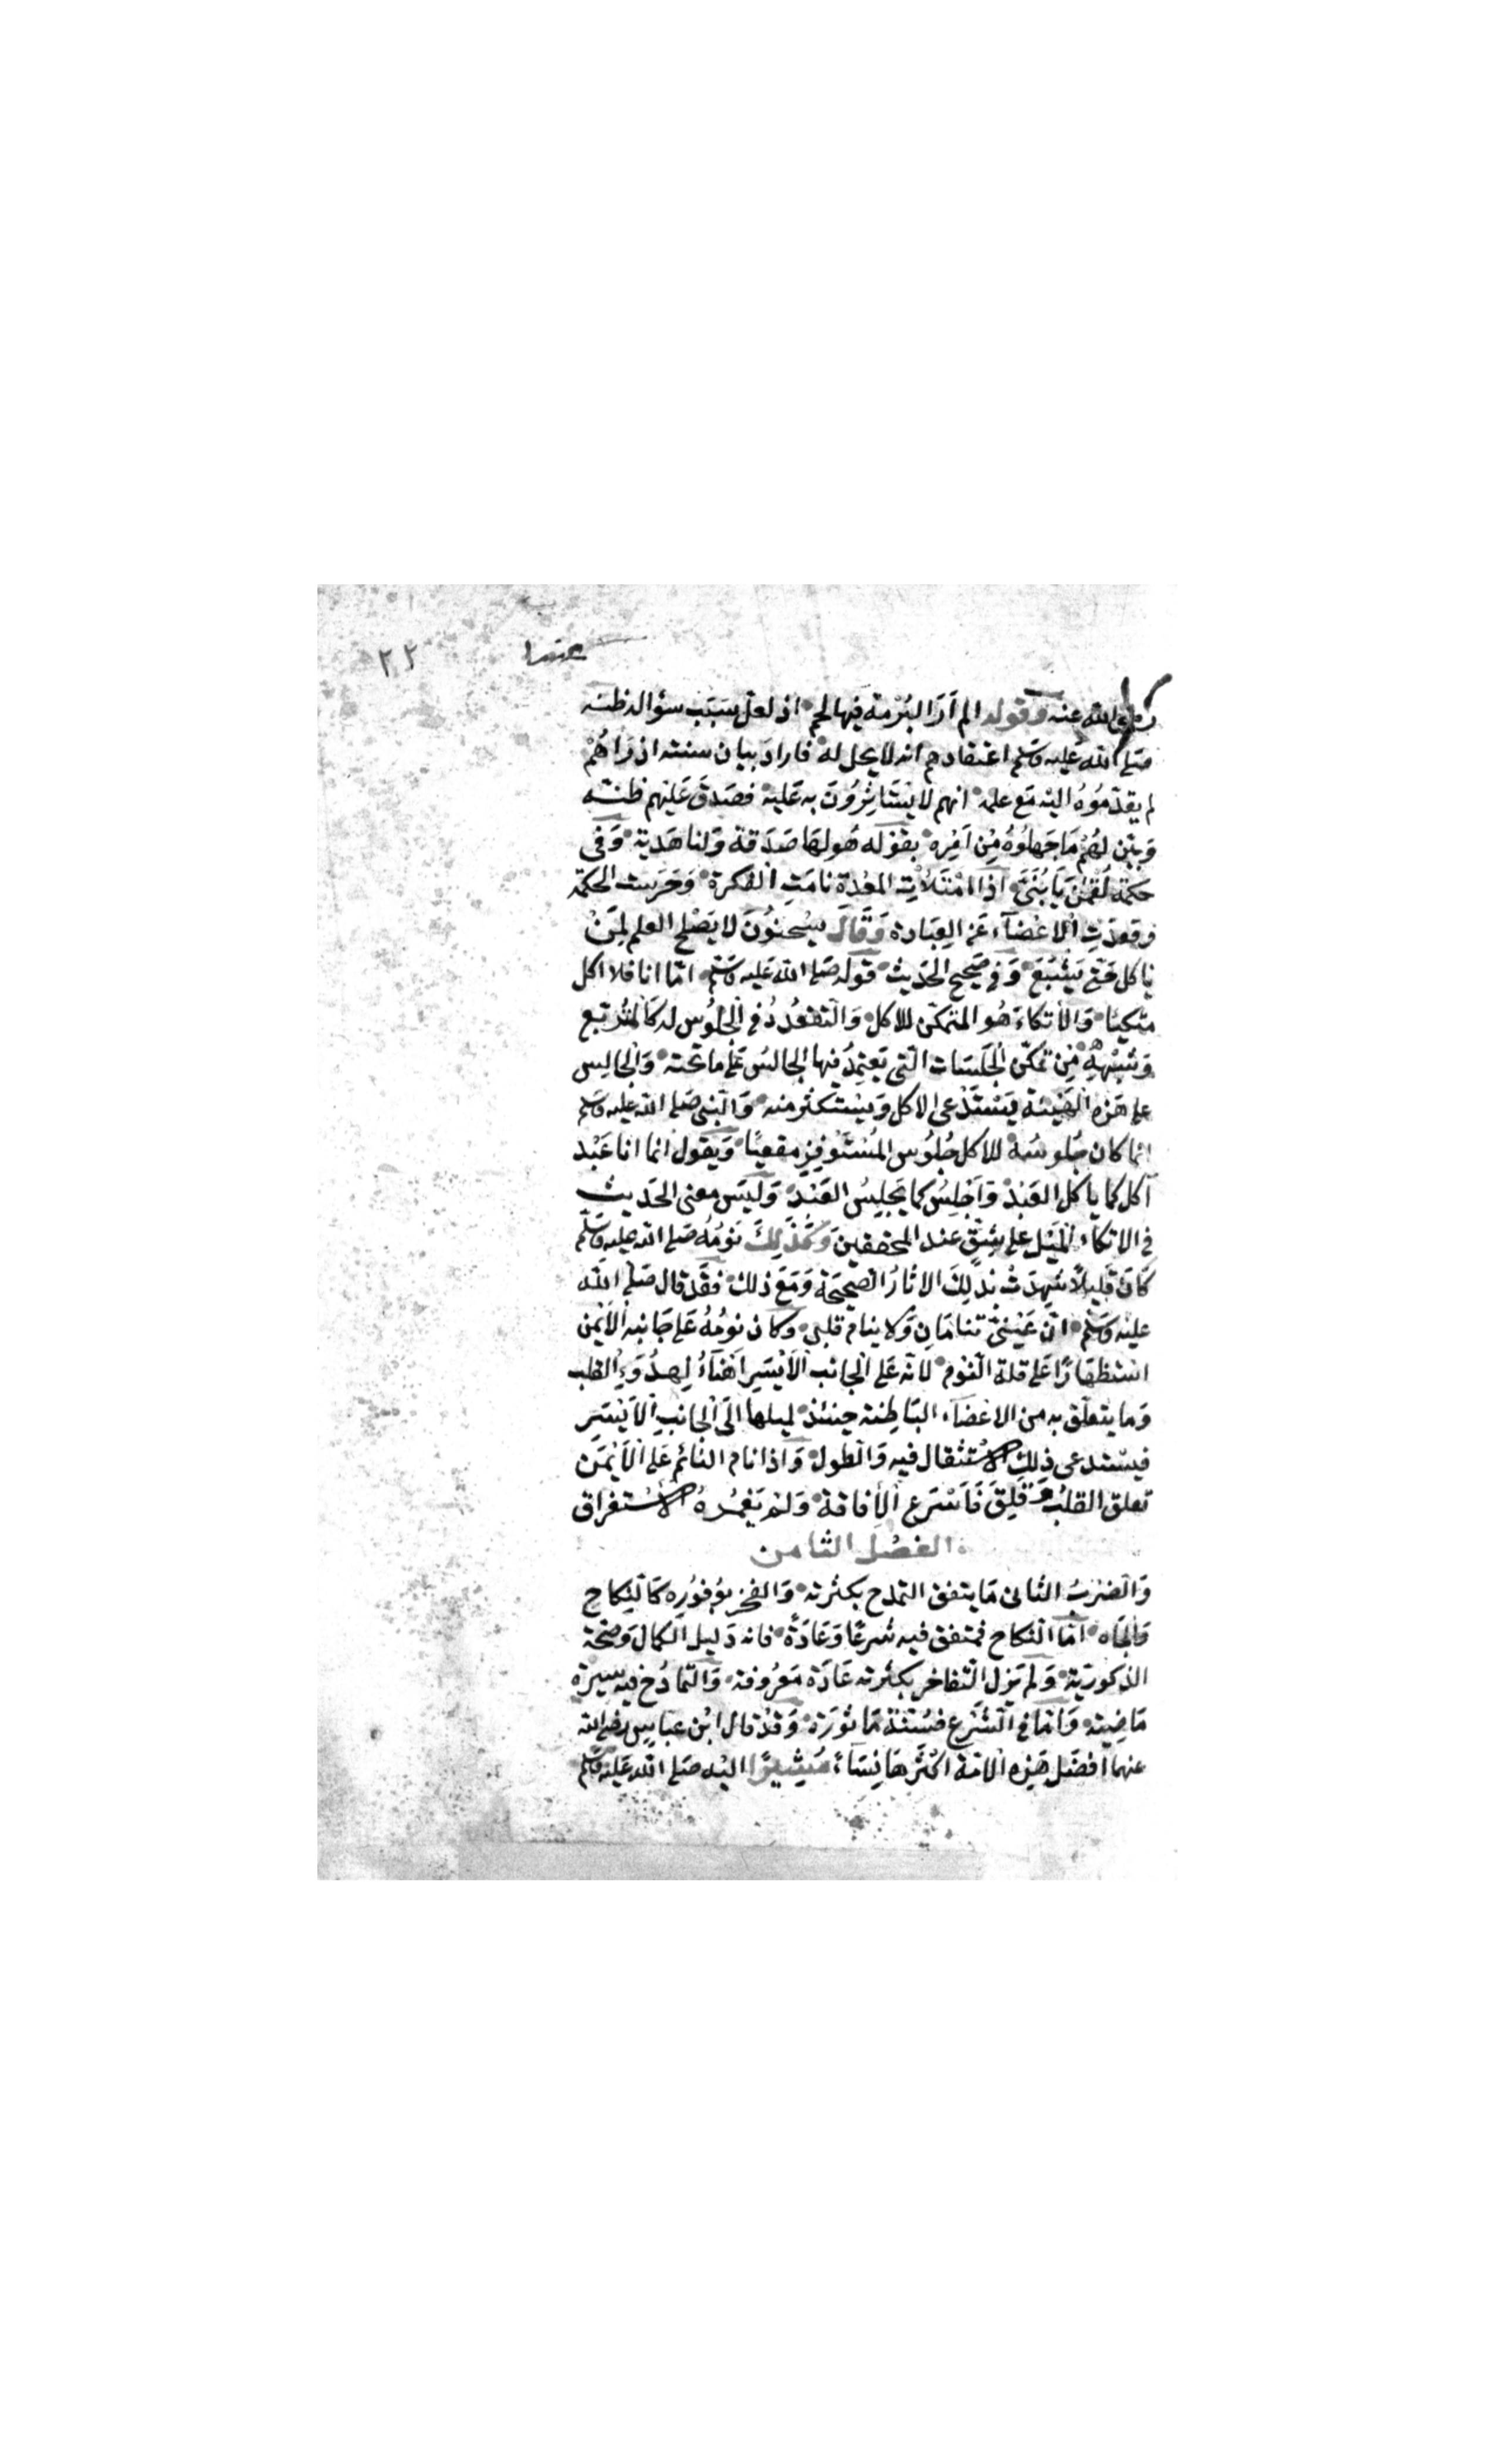 عشرا
٢٢
رضى الله عنه وقوله الم أرَ البُرْمة فيها لحم اذ لعل سَبَب سؤاله ظنه
صَلى الله عَليه وَسَلم اعتقادهم انه لا يحل له فاراد بيان سنته اذ رَاهُمْ
لم يقدّمُوهُ اليْه مَع علمه انهم لا يَسْتَاثِرُونَ به عَليْه فصَدق عَليْهم ظنه
وَبيّن لهُمْ مَا جَهلوُهُ مِن اَمْرِه بقوْله هُو لهَا صَدَقة وَلنا هَدية وَفى
حكمة لُقمٰنَ يَا بُنَىَّ اذَا امْتَلأتِ المعْدة نامَتِ الفكرة وَخَرسَت الحكمة
وقعدَتِ الاعْضآء عَن العِبَادة وَقَالَ سُحنوُنَ لا يَصْلح العلم لِمَنْ
ياكل حَتى يَشْبَعَ وَفى صَحيح الحَديث قوْله صَلى الله عَليه وَسَلم امّا انا فلا اكل
متكيًا وَالاتكاء هُو المتمكّن للاكل وَالتقعْدُدُ فى الجلوُس له كَالمُتَربّع
وَشبْهِهِ مِن تمكّن الجَلسَات التى يَعتمِدُ فيها الجالسُ عَلى مَا تحته وَالجالِس
على هَذه الهَيْئة يَسْتَدْعى الاكل وَيسْتكثر منه وَالنبى صَلى الله عليه وَسَلم
انما كان جُلوسُه للاكل جُلوُس المُسْتَوْفِزِ مقعيًا وَيقول انما انا عَبْد
آكل كما ياكل العَبْد وَاَجْلِسُ كما يَجْلِسُ العَبْد وَليْسَ معنى الحَديث
فى الاتكاء المَيْل على شِقٍّ عند المحققينَ وَكَذلِكَ نَوْمُه صَلى الله عليه وَسَلم
كانَ قليلاً شَهِدَتْ بذلِكَ الاثارُ الصَّحيحَة وَمَعَ ذلك فقَد قال صَلى الله
عليْه وَسَلم انّ عَيْنَىَّ تنامَانِ وَلا ينام قلبى وكان نوْمُهُ عَلى جَانبه الأيْمن
اسْتظهَارًا عَلى قلة النّوْم لانه عَلى الجَانب الأيْسَرِ اَهْنأُ لِهدُوَءِ القلب
وَما يتعلّق به من الاعْضآء البَاطِنة حينئذ لميلها الَى الجانبِ الأيْسَرِ
فيسْتدعى ذلِكَ الاسْتثقال فيه وَالطول وَاذا نام النائم عَلى الأيْمَن
تعلق القلبُ وَقلِقَ فَاَسْرَع الأفاقة وَلمْ يَغمُرهُ الاسْتغراق
الفصْل الثامن
وَالضرْبُ الثانى مَا يتفق التمدح بكثرته وَالفخر بوُفوُرِه كَالنكاح
وَالجَاه امّا النكاح فمتفق فيه شرعًا وَعَادَةً فانه دَليل الكمال وَصحّة
الذكورِيَة وَلم يَزل التفاخر بكثرته عَادَة مَعْرُوفة وَالتمادُح فيه سيرَة
مَاضيَة وَامّا فى الشّرْع فسُنّة مَاثورَة وَقد قال ابْن عبّاس رضى الله
عنهما اَفضَل هَذه الامّة اكثرهَا نِسَآءً مُشيرًا اليْه صَلى الله عَليْه وَسَلم